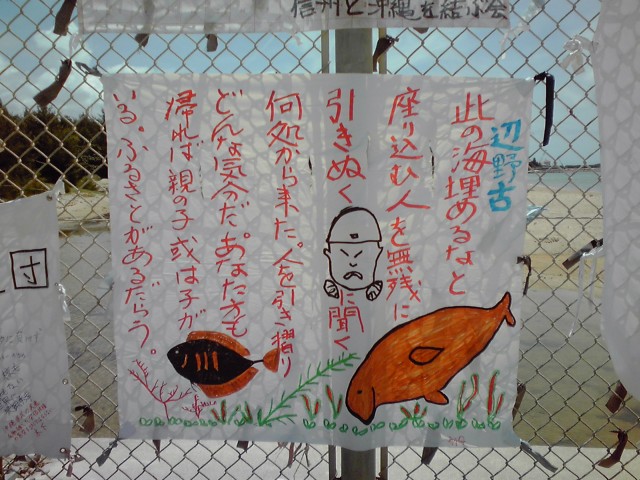 信州と沖縄を結ぶ会
辺野古
此の海埋めるなと
座り込む人を無残に
引きぬく に聞く
何処から来た。人を引き摺り
どんな気分だ。あなた方も
帰れば親の子或は子が
いる。ふるさとがあるだろう。